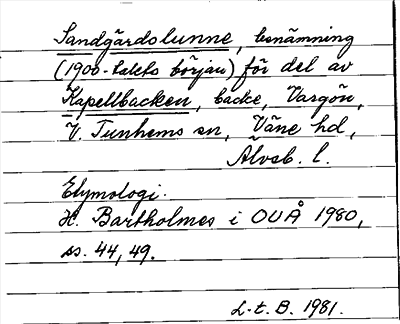 Sandgärdslunne, benämning
(1900-talets början) för del av
Kapellbacken, backe, Vargön,
V. Tunhems sn, Väne hd,
Älvsb. l.
Etymologi.
H. Bartholmes i OUÅ 1980,
ss. 44, 49.
L-t. B. 1981.